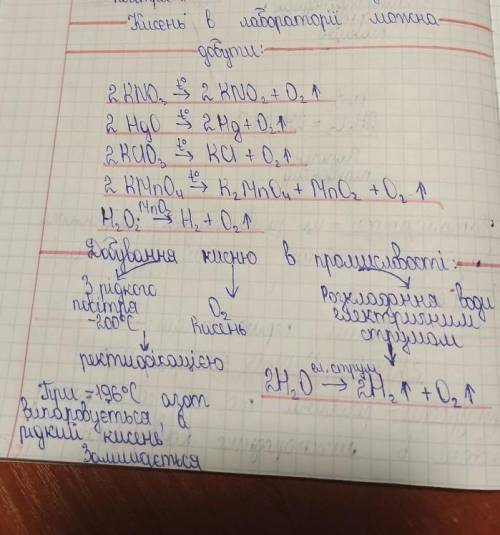 Кисень в лабораторії можна
добути:
2 KNO₃ →t° 2 KNO₂ + O₂↑
2 HgO →t° 2Hg + O₂↑
2KClO₃ →t° KCl + O₂↑
2 KMnO₄ →t° K₂MnO₄ + MnO₂ + O₂↑
H₂O₂ →MnO₂ H₂ + O₂↑
Добування кисню в промисловості:
З рідкого
повітря
-200°C
O₂
Кисень
Розкладання води
електричним
струмом
ректифікацією
2H₂O →ел.струм 2H₂↑ + O₂↑
При -196°C азот
випаровується, а
рідкий кисень
залишається